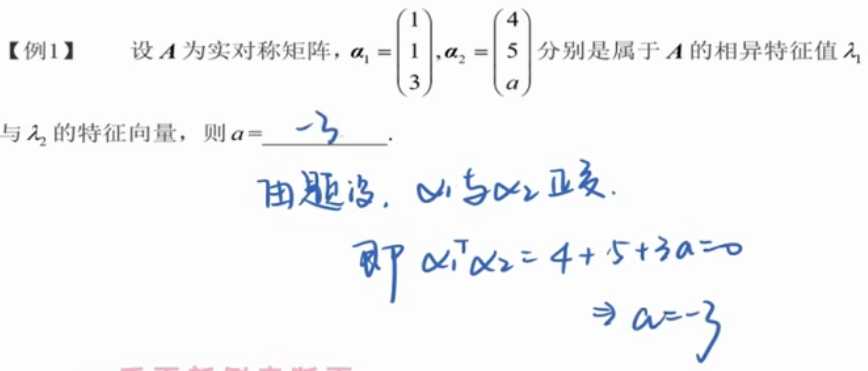 【例1】 设 A 为实对称矩阵，α₁ = (1 1 3), α₂ = (4 5 a) 分别是属于 A 的相异特征值 λ₁
与 λ₂ 的特征向量，则 a = -3 .
由题设, α₁与α₂正交.
即 α₁ᵀα₂ = 4 + 5 + 3a = 0
⇒ a = -3